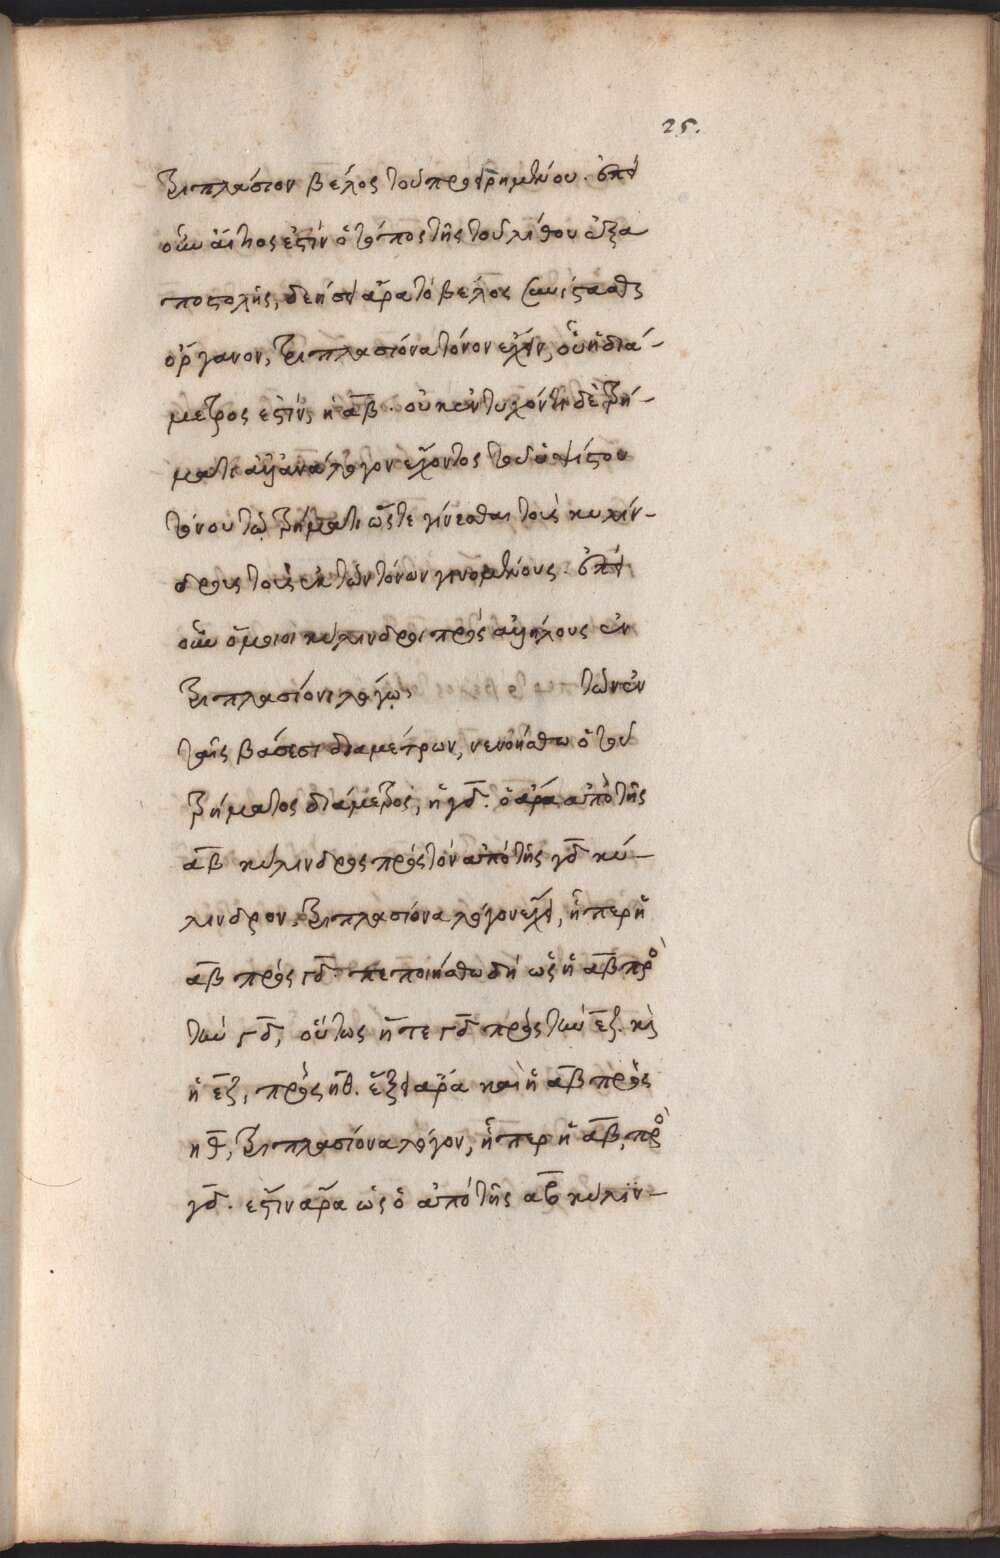 25.
τριπλάσιον βέλος τοῦ προειρημένου. ἐπεὶ
οὖν αἴτιος ἐστὶν ὁ τόπος τῆς τοῦ λίθου ἐξα
ποστολῆς, δεήσει ἄρα τὸ βέλος
ὄργανον, τριπλασίονα τόνον ἔχειν, οὗ ἡ διά-
μετρος ἐστὶν, ἡ α̅β̅. οὐκ ἐντυχόντι δὲ τρή-
ματι ἀλλ' ἀνάλογον ἔχοντος τοῦ
τόνου τῷ τρήματι ὥστε γίνεσθαι τοὺς κυλίν-
δρους τοὺς ἐκ τῶν τόνων γινομένους. ἐπεὶ
οὖν ὅμοιοι κύλινδροι πρὸς ἀλλήλους ἐν
τριπλασίονι λόγῳ τῶν ἐν
ταῖς βάσεσι διαμέτρων, νενοήσθω ὁ τοῦ
τρήματος διάμετρος, ἡ γ̅δ̅. ὁ ἄρα ἀπὸ τῆς
α̅β̅ κύλινδρος πρὸς τὸν ἀπὸ τῆς γ̅δ̅ κύ-
λινδρον, τριπλασίονα λόγον ἔχει, ἤπερ ἡ
α̅β̅ πρὸς γ̅δ̅. πεποιήσθω δὴ ὡς ἡ α̅β̅ πρὸ
τὴν γ̅δ̅, οὕτως ἥ τε γ̅δ̅ πρὸς τὴν ε̅ζ̅. κὶ
ἡ ε̅ζ̅, πρὸς η̅θ̅. ἕξει ἄρα καὶ ἡ α̅β̅ πρὸς
η̅θ̅, τριπλασίονα λόγον, ἤπερ ἡ α̅β̅, πρὸ
γ̅δ̅. ἔστιν ἄρα ὡς ὁ ἀπὸ τῆς α̅β̅ κύλιν-